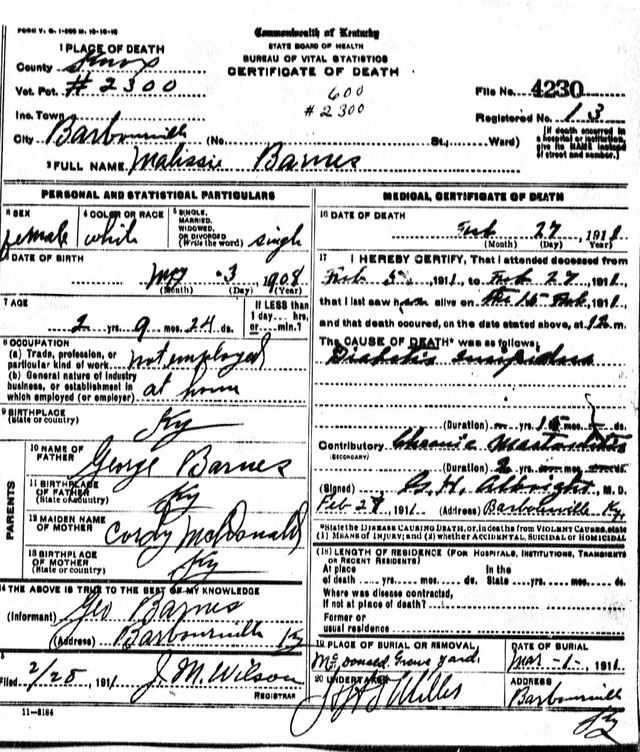 FORM V. S. 1-
Commonwealth of Kentucky
STATE BOARD OF HEALTH
BUREAU OF VITAL STATISTICS
CERTIFICATE OF DEATH
1 PLACE OF DEATH
County Knox
Vot. Pct. # 2300
600
# 2300
File No. 4230
Registered No. 13
Inc. Town
City Barbourville (No. St.; Ward)
[If death occurred in a hospital or institution, give its NAME instead of street and number.]
2 FULL NAME Malissie Barnes
PERSONAL AND STATISTICAL PARTICULARS
3 SEX female
4 COLOR OR RACE white
5 SINGLE, MARRIED, WIDOWED, OR DIVORCED (Write the word) single
6 DATE OF BIRTH
May 3 1908
(Month) (Day) (Year)
7 AGE
2 yrs. 9 mos. 24 ds.
If LESS than 1 day hrs. or min.?
8 OCCUPATION
(a) Trade, profession, or particular kind of work not employed
(b) General nature of industry business, or establishment in which employed (or employer) at home
9 BIRTHPLACE (State or country) Ky
PARENTS
10 NAME OF FATHER George Barnes
11 BIRTHPLACE OF FATHER (State or country) Ky
12 MAIDEN NAME OF MOTHER Cordy McDonald
13 BIRTHPLACE OF MOTHER (State or country) Ky
14 THE ABOVE IS TRUE TO THE BEST OF MY KNOWLEDGE
(Informant) Geo Barnes
(Address) Barbourville Ky
Filed 2/28, 1911 J. M. Wilson
REGISTRAR
11-3184
MEDICAL CERTIFICATE OF DEATH
16 DATE OF DEATH
Feb 27, 1911
(Month) (Day) (Year)
17 I HEREBY CERTIFY, That I attended deceased from
Feb 5, 1911, to Feb 27, 1911,
that I last saw alive on the 15 Feb, 1911,
and that death occured, on the date stated above, at 12 m.
The CAUSE OF DEATH* was as follows:
Diabetis insipidus
(Duration) yrs. 15 mos. ds.
Contributory Chronic
(SECONDARY)
(Duration) 2 yrs. mos. ds.
(Signed) G. H. Albright, M. D.
Feb 28, 1911 (Address) Barbourville Ky.
*State the DISEASE CAUSING DEATH, or, in deaths from VIOLENT CAUSES, state (1) MEANS OF INJURY; and (2) whether ACCIDENTAL, SUICIDAL or HOMICIDAL
(18) LENGTH OF RESIDENCE (FOR HOSPITALS, INSTITUTIONS, TRANSIENTS OR RECENT RESIDENTS)
At place of death yrs. mos. ds. In the State yrs. mos. ds.
Where was disease contracted, If not at place of death?
Former or usual residence
19 PLACE OF BURIAL OR REMOVAL
McDonald Grave yard.
DATE OF BURIAL
Mar -1-, 1911
20 UNDERTAKER
Miller
ADDRESS
Barbourville
Ky